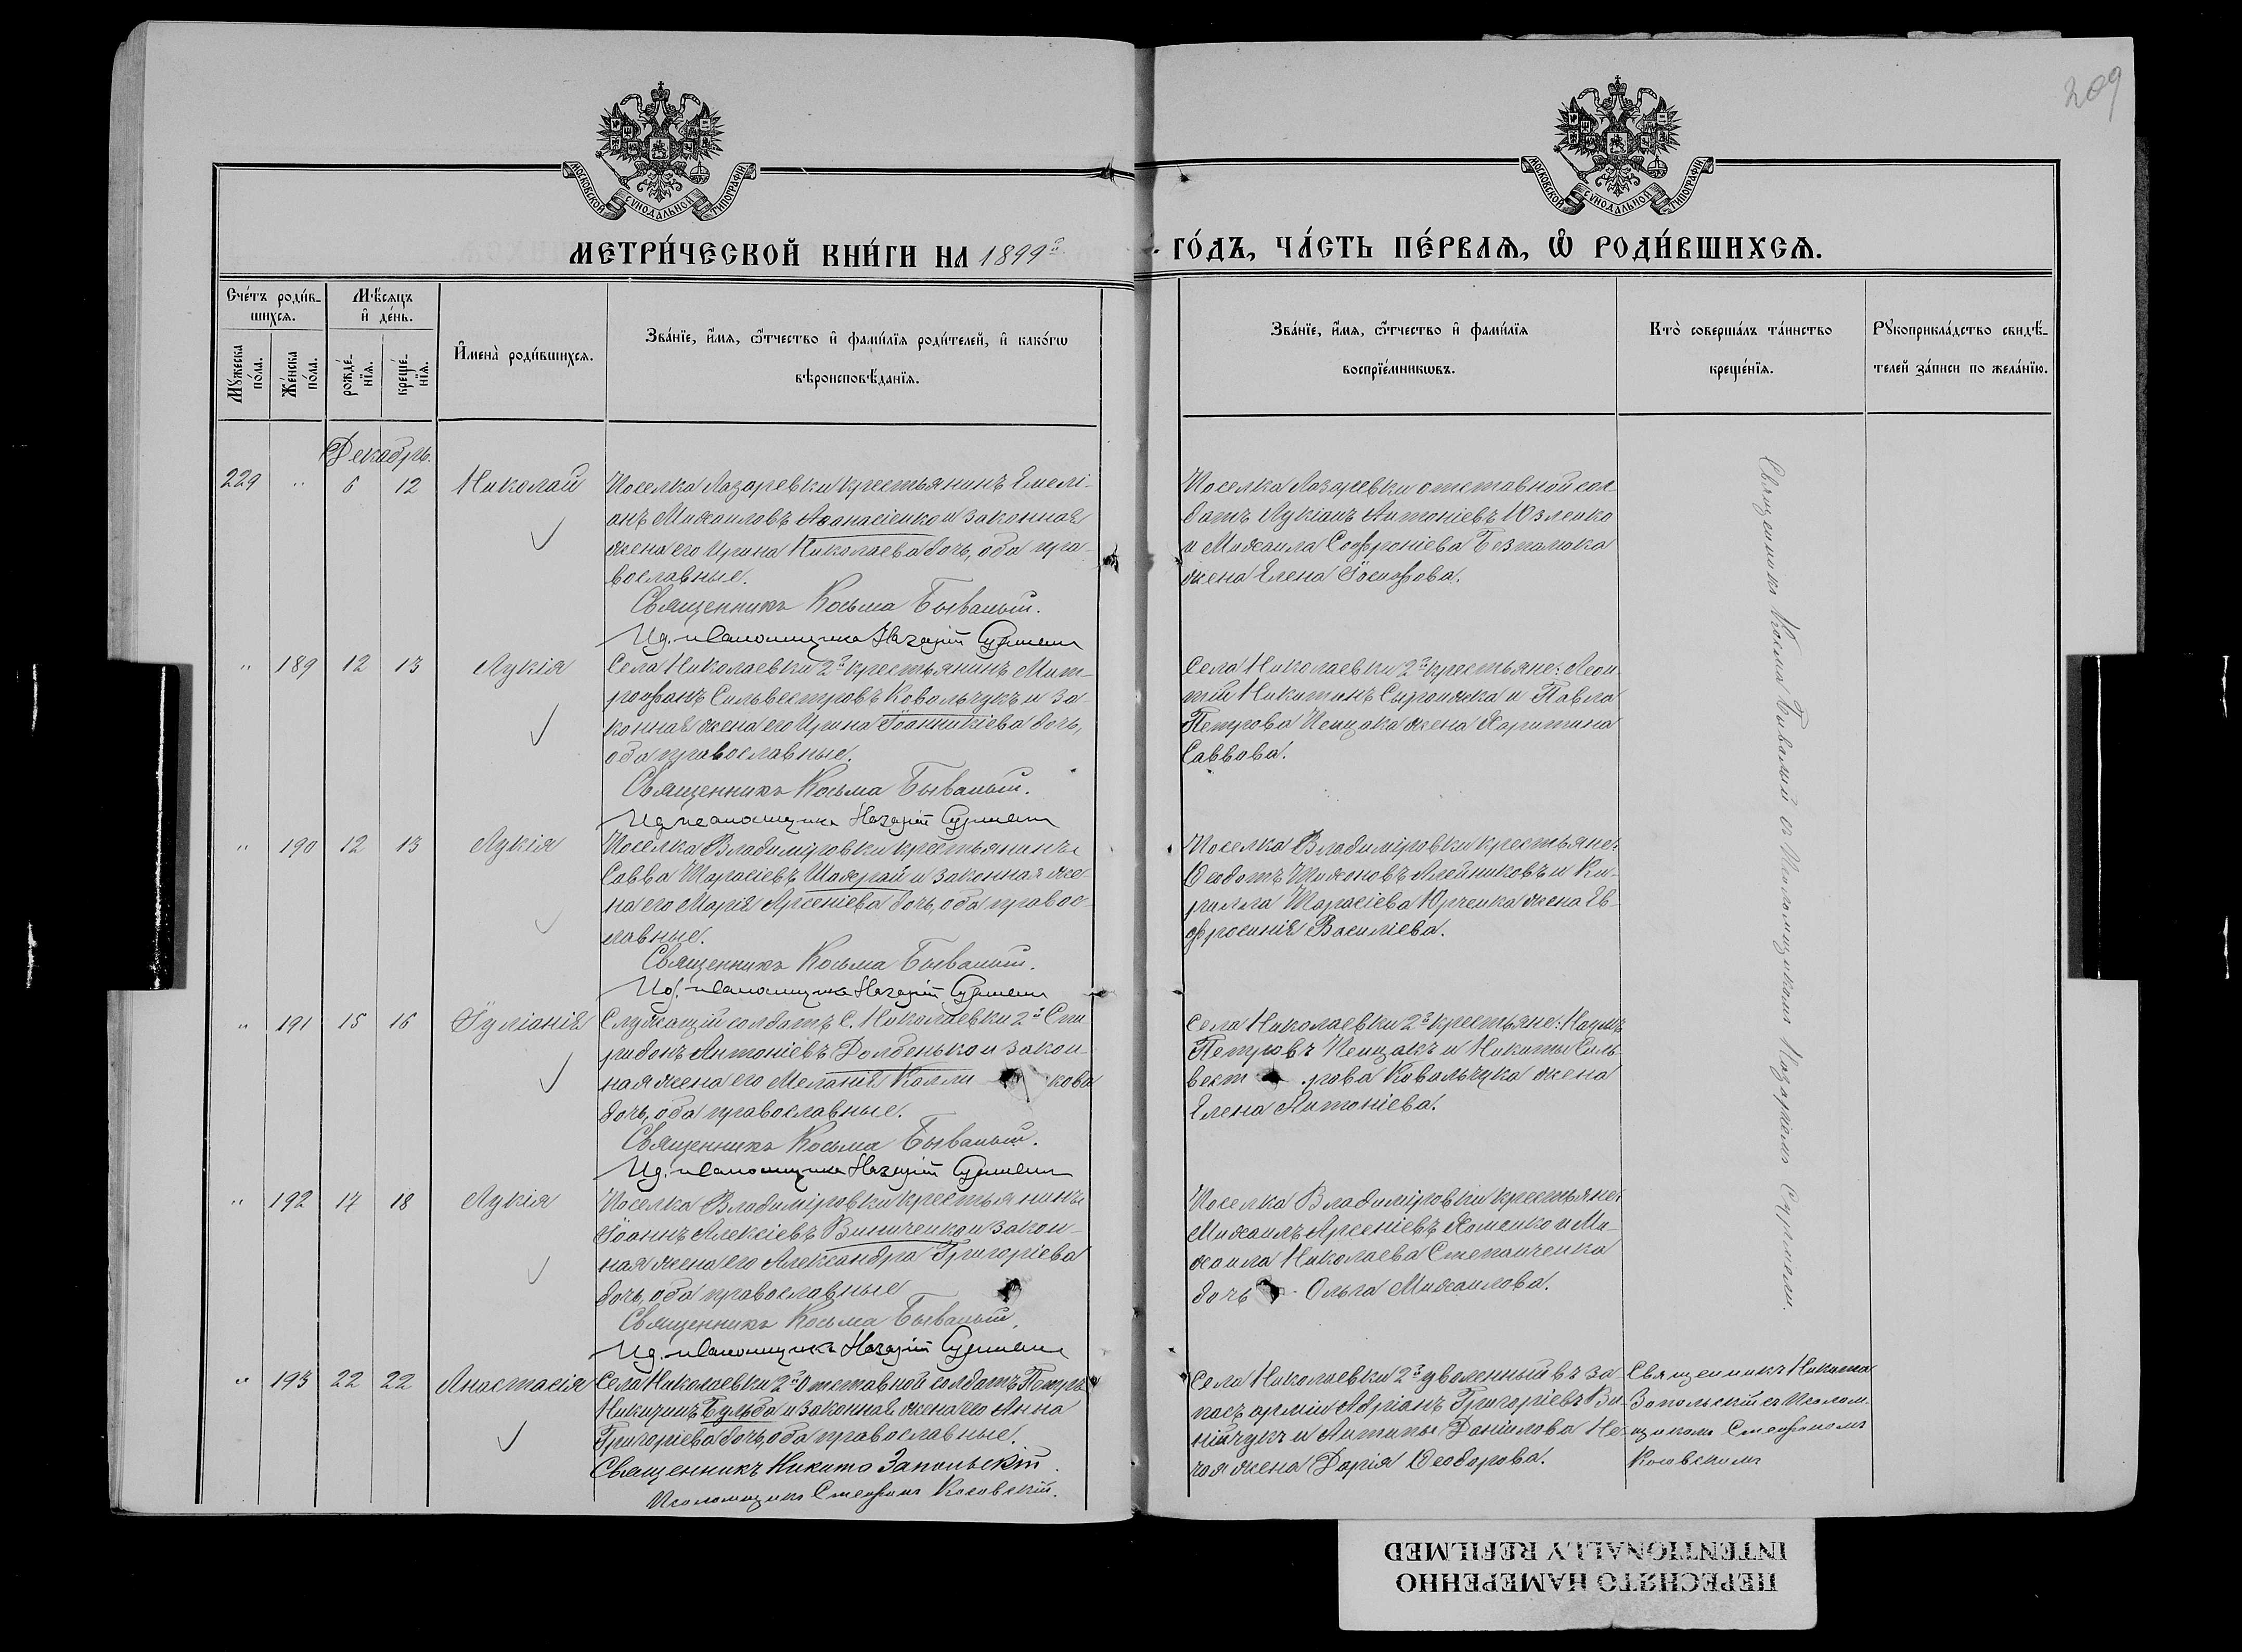 209
МОСКОВСКОЙ СѴНОДАЛЬНОЙ ТИПОГРАФІИ
МОСКОВСКОЙ СѴНОДАЛЬНОЙ ТИПОГРАФІИ
МЕТРИ́ЧЕСКОЙ КНИ́ГИ НА 1899й ГО́ДЪ, ЧА́СТЬ ПЕ́РВАѦ, Ѡ҆ РОДИ́ВШИХСѦ.
Счéтъ роди́в-
шихсѧ.
Мѣ́сѧцъ
и҆ де́нь.
Мꙋ́жеска по́ла.
Же́нска по́ла.
рожде́-нїѧ.
креще́-нїѧ.
И҆мена̀ роди́вшихсѧ.
Зва́нїе, и҆́мѧ, ѻ҆́тчество и҆ фами́лїѧ роди́телей, и҆ како́гѡ
вѣроисповѣ́данїѧ.
Зва́нїе, и҆́мѧ, ѻ҆́тчество и҆ фами́лїѧ
воспрїе́мникѡвъ.
Кто̀ соверша́лъ та́инство
креще́нїѧ.
Рꙋкоприкла́дство свидѣ́-
телей за́писи по жела́нїю.
Декабрь.
229 " 6 12 Николай
Поселка Лазаревки крестьянинъ Емелі-
анъ Михаиловъ Аѳанасіенко и законная
жена его Ирина Николаева дочь, оба пра-
вославные.
Священникъ Косьма Бывалый.
Ид. псаломщика Назарій Сурмели
Поселка Лазаревки отставной сол-
датъ Лукіанъ Антоніевъ Юзленко
и Михаила Софроніева Безпалока
жена Елена Іосифова.
Священникъ Косма Бывалый съ Псаломщикомъ Назаріемъ Сурмели.
" 189 12 13 Лукія
Села Николаевки 2й крестьянинъ Мит-
рофанъ Сильвестровъ Ковальчукъ и за-
конная жена его Ирина Іоанникіева дочь,
оба православные.
Священникъ Косьма Бывалый.
Ид. псаломщика Назарій Сурмели
Села Николаевки 2й крестьяне: Леон-
тій Никитинъ Сыроижка и Павла
Петрова Пещака жена Харитина
Саввова.
" 190 12 13 Лукія
Поселка Владиміровки крестьянинъ
Савва Тарасіевъ Шахрай и законная же-
на его Марія Арсеніева дочь, оба правос-
лавные.
Священникъ Косьма Бывалый.
Ид. псаломщика Назарій Сурмели
Поселка Владиміровки крестьяне:
Ѳеодотъ Тихоновъ Алейниковъ и Ки-
рилла Тарасіева Юрченка жена Ев-
фросинія Василіева.
" 191 15 16 Іуліанія
Служащій солдатъ С. Николаевки 2й Спи-
ридонъ Антоніевъ Долбенько и закон-
ная жена его Меланія Калли кова
дочь, оба православные.
Священникъ Косьма Бывалый.
Ид. псаломщика Назарій Сурмели
Села Николаевки 2й крестьяне: Наумъ
Петровъ Пещакъ и Никиты Силь-
вест рова Ковальчука жена
Елена Антоніева.
" 192 17 18 Лукія
Поселка Владиміровки крестьянинъ
Іоаннъ Алексіевъ Виниченко и закон-
ная жена его Александра Григоріева
дочь, оба православные
Священникъ Косьма Бывалый.
Ид. псаломщика Назарій Сурмели
Поселка Владиміровки крестьяне:
Михаилъ Арсеніевъ Хоменко и Ми-
хаила Николаева Степанченка
дочь Ольга Михаилова.
" 193 22 22 Анастасія
Села Николаевки 2й Отставной солдатъ Петръ
Никитинъ Бульба и законная жена его Анна
Григоріева дочь, оба православные.
Священникъ Никита Запольскій.
Псаломщикъ Стефанъ Косовскій.
Села Николаевки 2й уволенный въ за-
пасъ арміи Адріанъ Григоріевъ Ви-
нійчукъ и Антипы Даніилова Не-
чая жена Дарія Ѳеодорова.
Священникъ Никита
Запольскій съ Псалом-
щикомъ Стефаномъ
Косовскимъ
ПЕРЕСНЯТО НАМЕРЕННО
INTENTIONALLY REFILMED